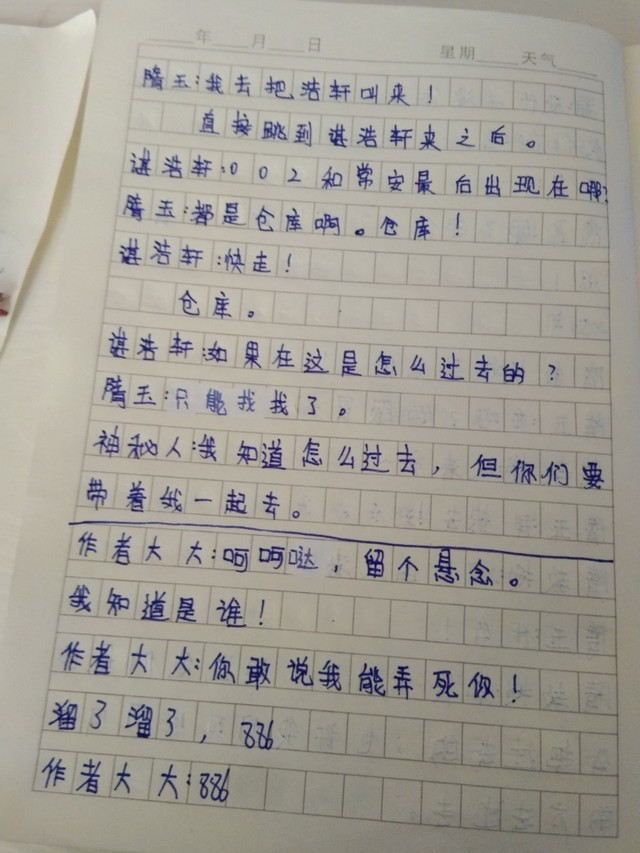 年 月 日 星期 天气
隋玉:我去把浩轩叫来!
直接跳到谌浩轩来之后。
谌浩轩:002和常安最后出现在哪?
隋玉:都是仓库啊。仓库!
谌浩轩:快走!
仓库。
谌浩轩:如果在这是怎么过去的?
隋玉:只能找找了。
神秘人:我知道怎么过去,但你们要
带着我一起去。
作者大大:呵呵哒,留个悬念。
我知道是谁!
作者大大:你敢说我能弄死你!
溜了溜了,886
作者大大:886